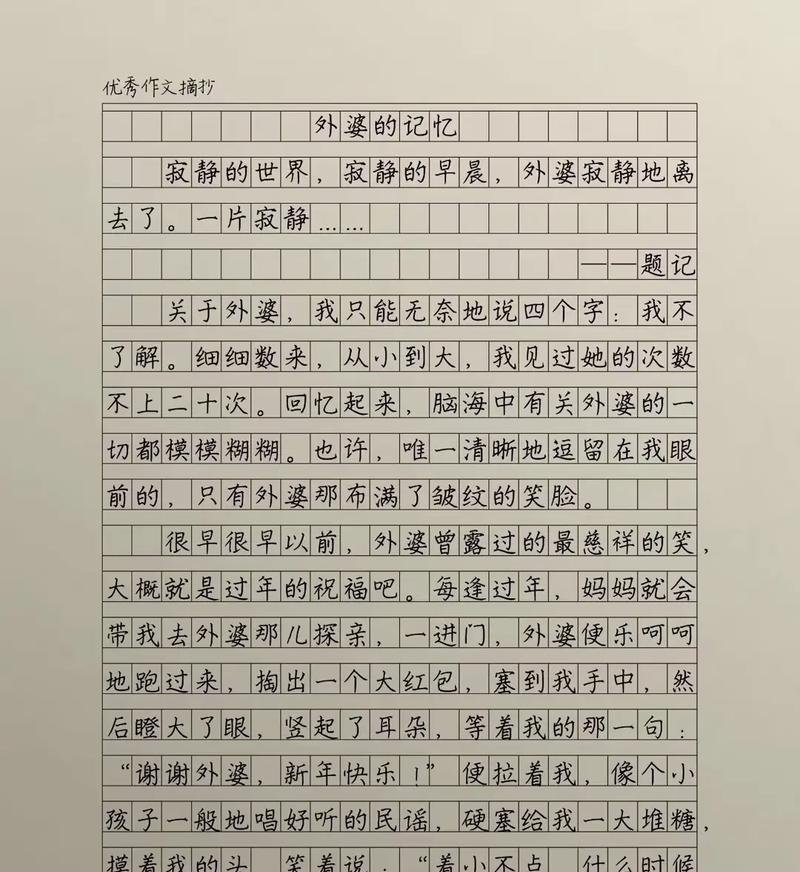 优秀作文摘抄
外婆的记忆
寂静的世界，寂静的早晨，外婆寂静地离
去了。一片寂静……
——题记
关于外婆，我只能无奈地说四个字：我不
了解。细细数来，从小到大，我见过她的次数
不上二十次。回忆起来，脑海中有关外婆的一
切都模模糊糊。也许，唯一清晰地逗留在我眼
前的，只有外婆那布满了皱纹的笑脸。
很早很早以前，外婆曾露过的最慈祥的笑，
大概就是过年的祝福吧。每逢过年，妈妈就会
带我去外婆那儿探亲，一进门，外婆便乐呵呵
地跑过来，掏出一个大红包，塞到我手中，然
后瞪大了眼，竖起了耳朵，等着我的那一句：
“谢谢外婆，新年快乐！”便拉着我，像个小
孩子一般地唱好听的民谣，硬塞给我一大堆糖，
摸着我的头，笑着说：“着小不点，什么时候